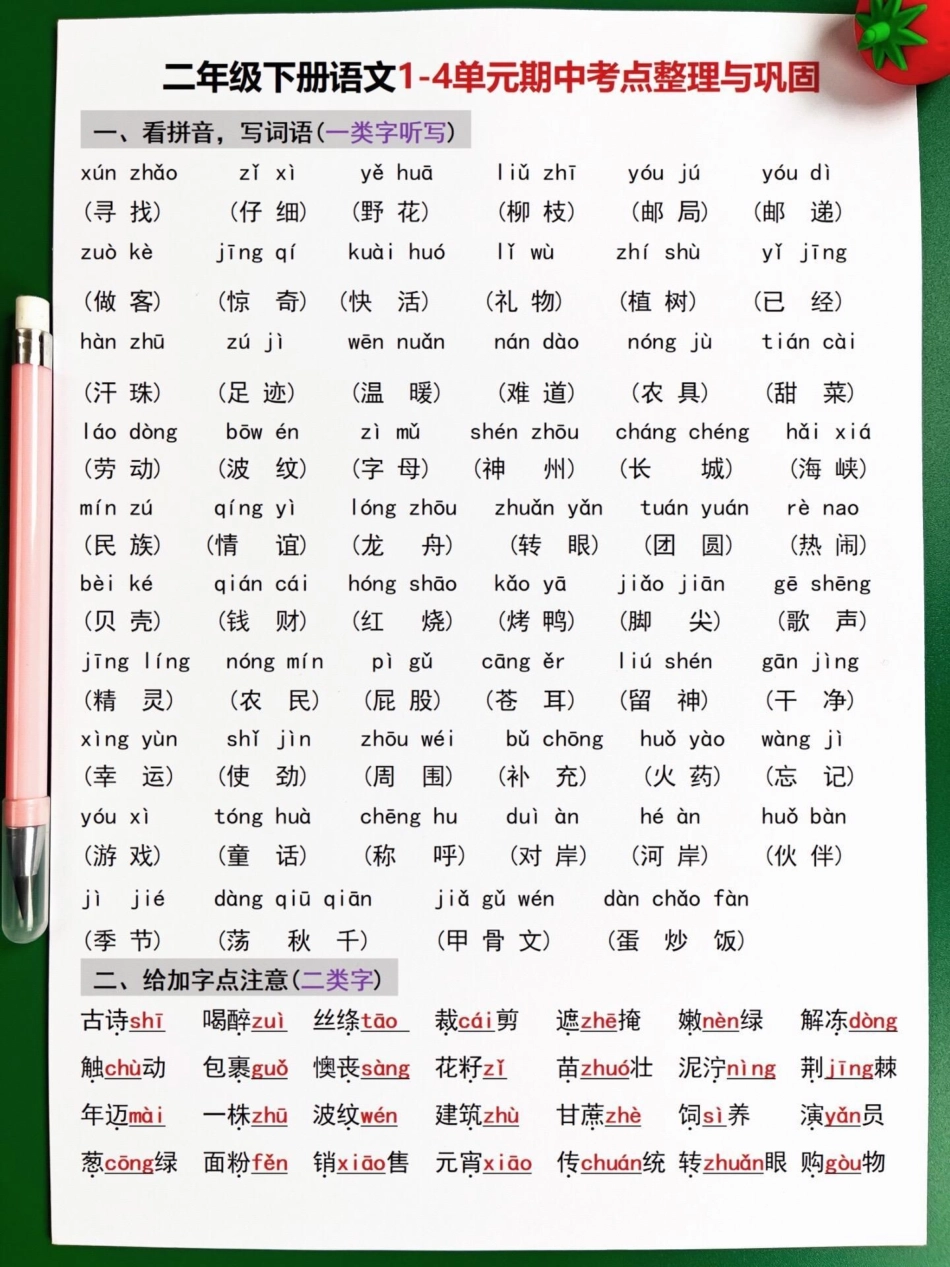 二年级下册语文1-4单元期中考点整理与巩固
一、看拼音，写词语(一类字听写)
xún zhǎo zǐ xì yě huā liǔ zhī yóu jú yóu dì
(寻 找) (仔 细) (野 花) (柳 枝) (邮 局) (邮 递)
zuò kè jīng qí kuài huó lǐ wù zhí shù yǐ jīng
(做 客) (惊 奇) (快 活) (礼 物) (植 树) (已 经)
hàn zhū zú jì wēn nuǎn nán dào nóng jù tián cài
(汗 珠) (足 迹) (温 暖) (难 道) (农 具) (甜 菜)
láo dòng bōw én zì mǔ shén zhōu cháng chéng hǎi xiá
(劳 动) (波 纹) (字 母) (神 州) (长 城) (海 峡)
mín zú qíng yì lóng zhōu zhuǎn yǎn tuán yuán rè nao
(民 族) (情 谊) (龙 舟) (转 眼) (团 圆) (热 闹)
bèi ké qián cái hóng shāo kǎo yā jiǎo jiān gē shēng
(贝 壳) (钱 财) (红 烧) (烤 鸭) (脚 尖) (歌 声)
jīng líng nóng mín pì gǔ cāng ěr liú shén gān jìng
(精 灵) (农 民) (屁 股) (苍 耳) (留 神) (干 净)
xìng yùn shǐ jìn zhōu wéi bǔ chōng huǒ yào wàng jì
(幸 运) (使 劲) (周 围) (补 充) (火 药) (忘 记)
yóu xì tóng huà chēng hu duì àn hé àn huǒ bàn
(游 戏) (童 话) (称 呼) (对 岸) (河 岸) (伙 伴)
jì jié dàng qiū qiān jiǎ gǔ wén dàn chǎo fàn
(季 节) (荡 秋 千) (甲 骨 文) (蛋 炒 饭)
二、给加字点注意(二类字)
古诗shī 喝醉zuì 丝绦tāo 裁cái剪 遮zhē掩 嫩nèn绿 解冻dòng
触chù动 包裹guǒ 懊丧sàng 花籽zǐ 茁zhuó壮 泥泞nìng 荆jīng棘
年迈mài 一株zhū 波纹wén 建筑zhù 甘蔗zhè 饲sì养 演yǎn员
葱cōng绿 面粉fěn 销xiāo售 元宵xiāo 传chuán统 转zhuǎn眼 购gòu物